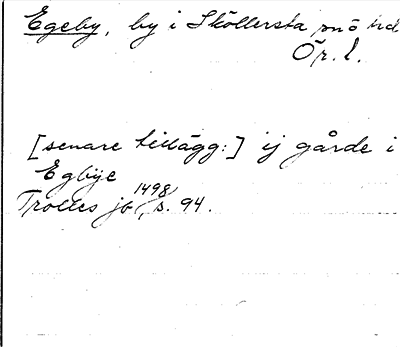 Egeby, by i Sköllersta snö hd
Ör. l.
[senare tillägg:] ij gårde i
Egbye
Trolles jb 1498, s. 94.